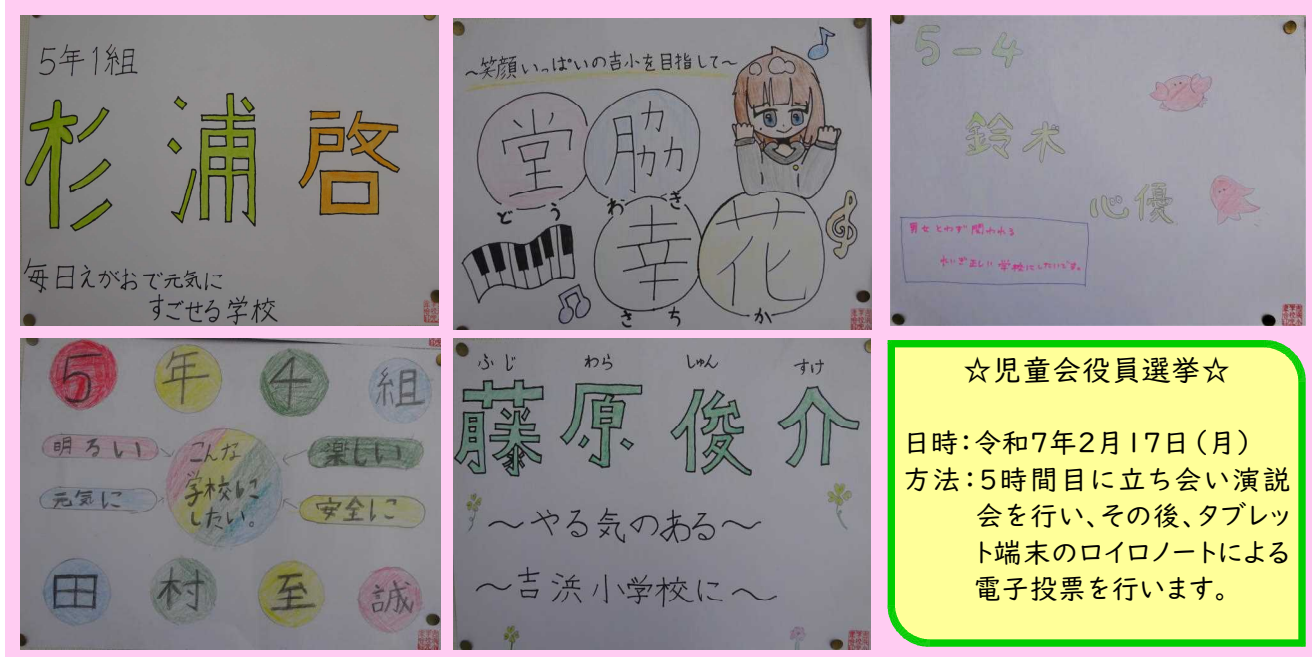 5年1組
杉浦啓
毎日えがおで元気に
すごせる学校
～笑顔いっぱいの吉小を目指して～
堂脇
どうわき
幸花
さちか
5-4
鈴木
心優
男女とわず関われる
れいぎ正しい学校にしたいです。
5年4組
明るい
こんな
学校に
したい。
楽しい
元気に
安全に
田村至誠
ふじ わら しゅん すけ
藤原俊介
～やる気のある～
～吉浜小学校に～
☆児童会役員選挙☆
日時：令和7年2月17日（月）
方法：5時間目に立ち会い演説
会を行い、その後、タブレッ
ト端末のロイロノートによる
電子投票を行います。